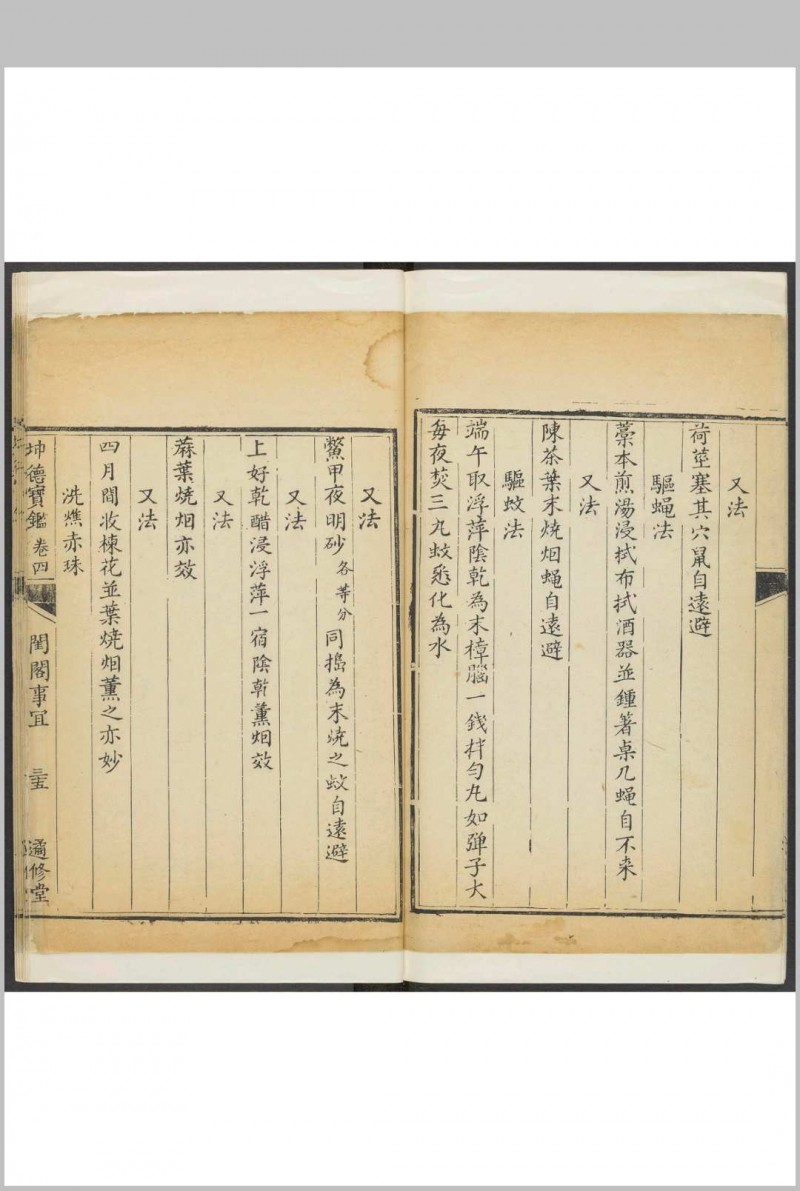 又法
荷莖塞其穴鼠自遠避
驅蝇法
藁本煎湯浸拭布拭酒器並鍾箸桌几蝇自不来
又法
陳茶葉末烧烟蝇自遠避
驅蚊法
端午取浮萍陰乾為末樟腦一錢拌匀丸如弹子大
每夜焚三丸蚊悉化為水
又法
鱉甲夜明砂各等分同搗為末烧之蚊自遠避
又法
上好乾醋浸浮萍一宿陰乾薰烟效
又法
蔴葉烧烟亦效
又法
四月間收楝花並葉烧烟薰之亦妙
洗爊赤珠
坤德寶鑑 卷四 閨閣事宜 三五 遹修堂